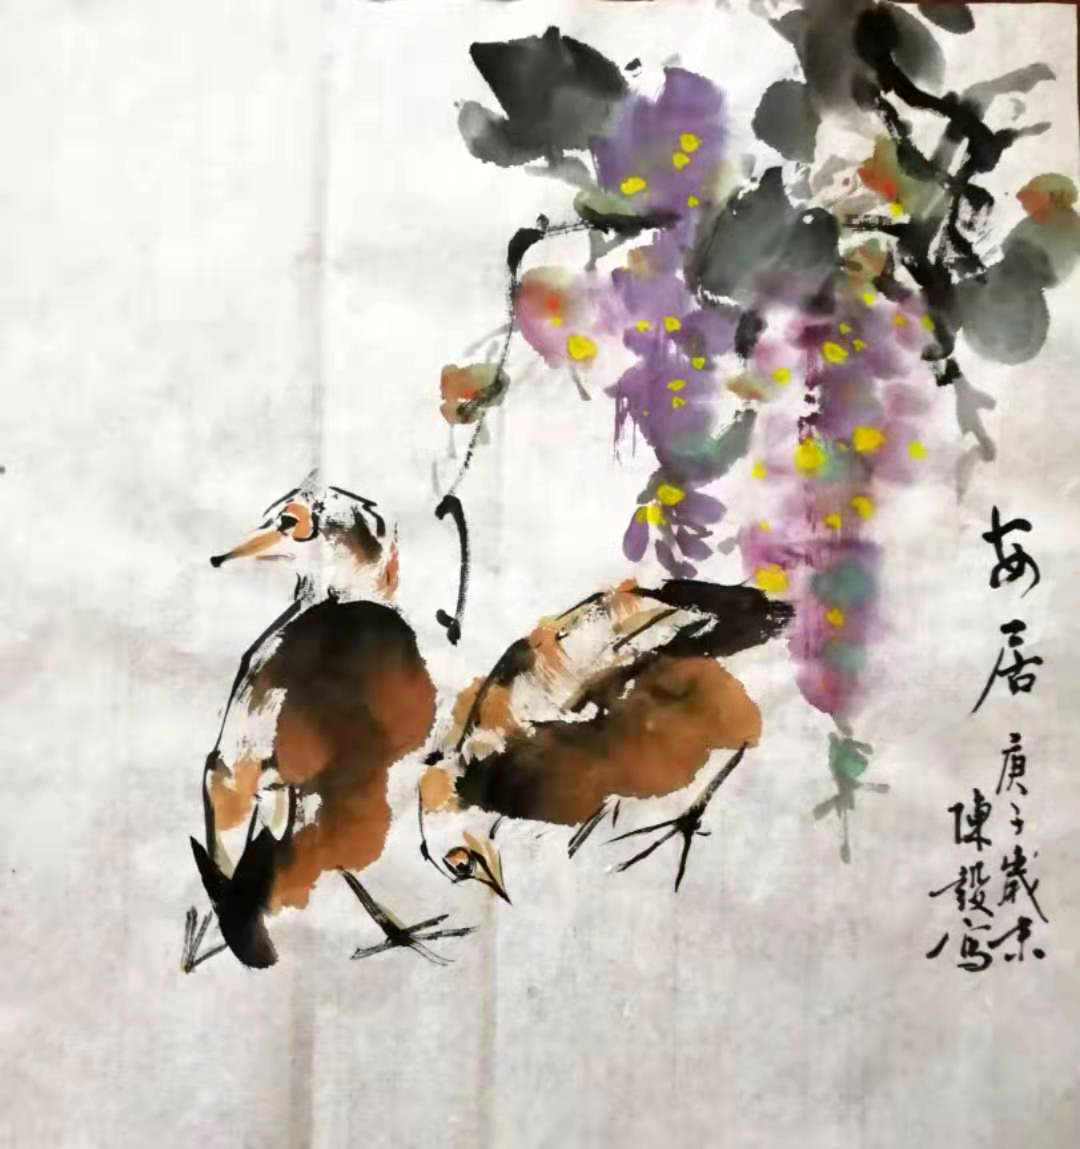 安居 庚子歲末
陳毅寫